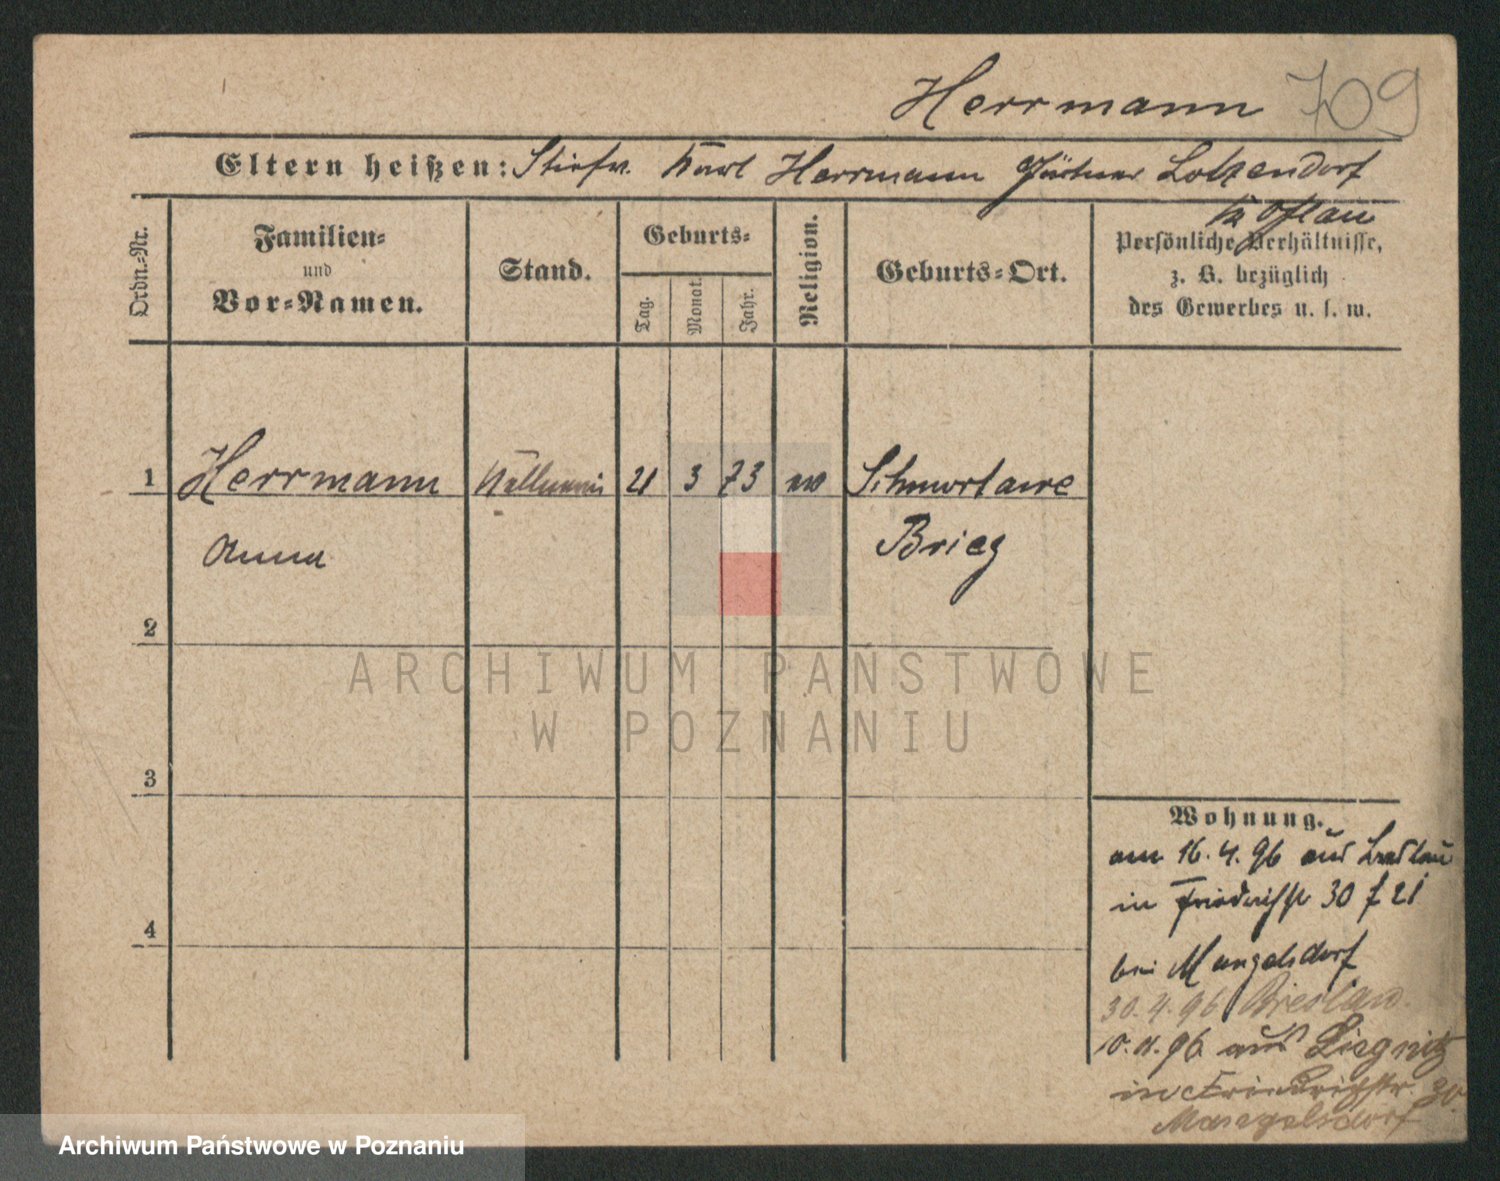 Herrmann 709
Eltern heißen: Stiefv. Karl Herrmann Gärtner Lotzendorf
Ordn.-Nr.
Familien-
und
Vor-Namen.
Stand.
Geburts-
Tag.
Monat.
Jahr.
Religion.
Geburts-Ort.
Persönliche Verhältnisse,
z. B. bezüglich
des Gewerbes u. s. w.
1 Herrmann Kellnerin 21 3 73 ev
Anna Brieg
2
ARCHIWUM PAŃSTWOWE
W POZNANIU
3
4
Wohnung.
am 16.4.96 aus Breslau
in Friedrichstr 30 f 21
bei Mangelsdorf
30.4.96 Breslau.
10.11.96 aus Liegnitz
in Friedrichstr. 30.
Mangelsdorf
Archiwum Państwowe w Poznaniu